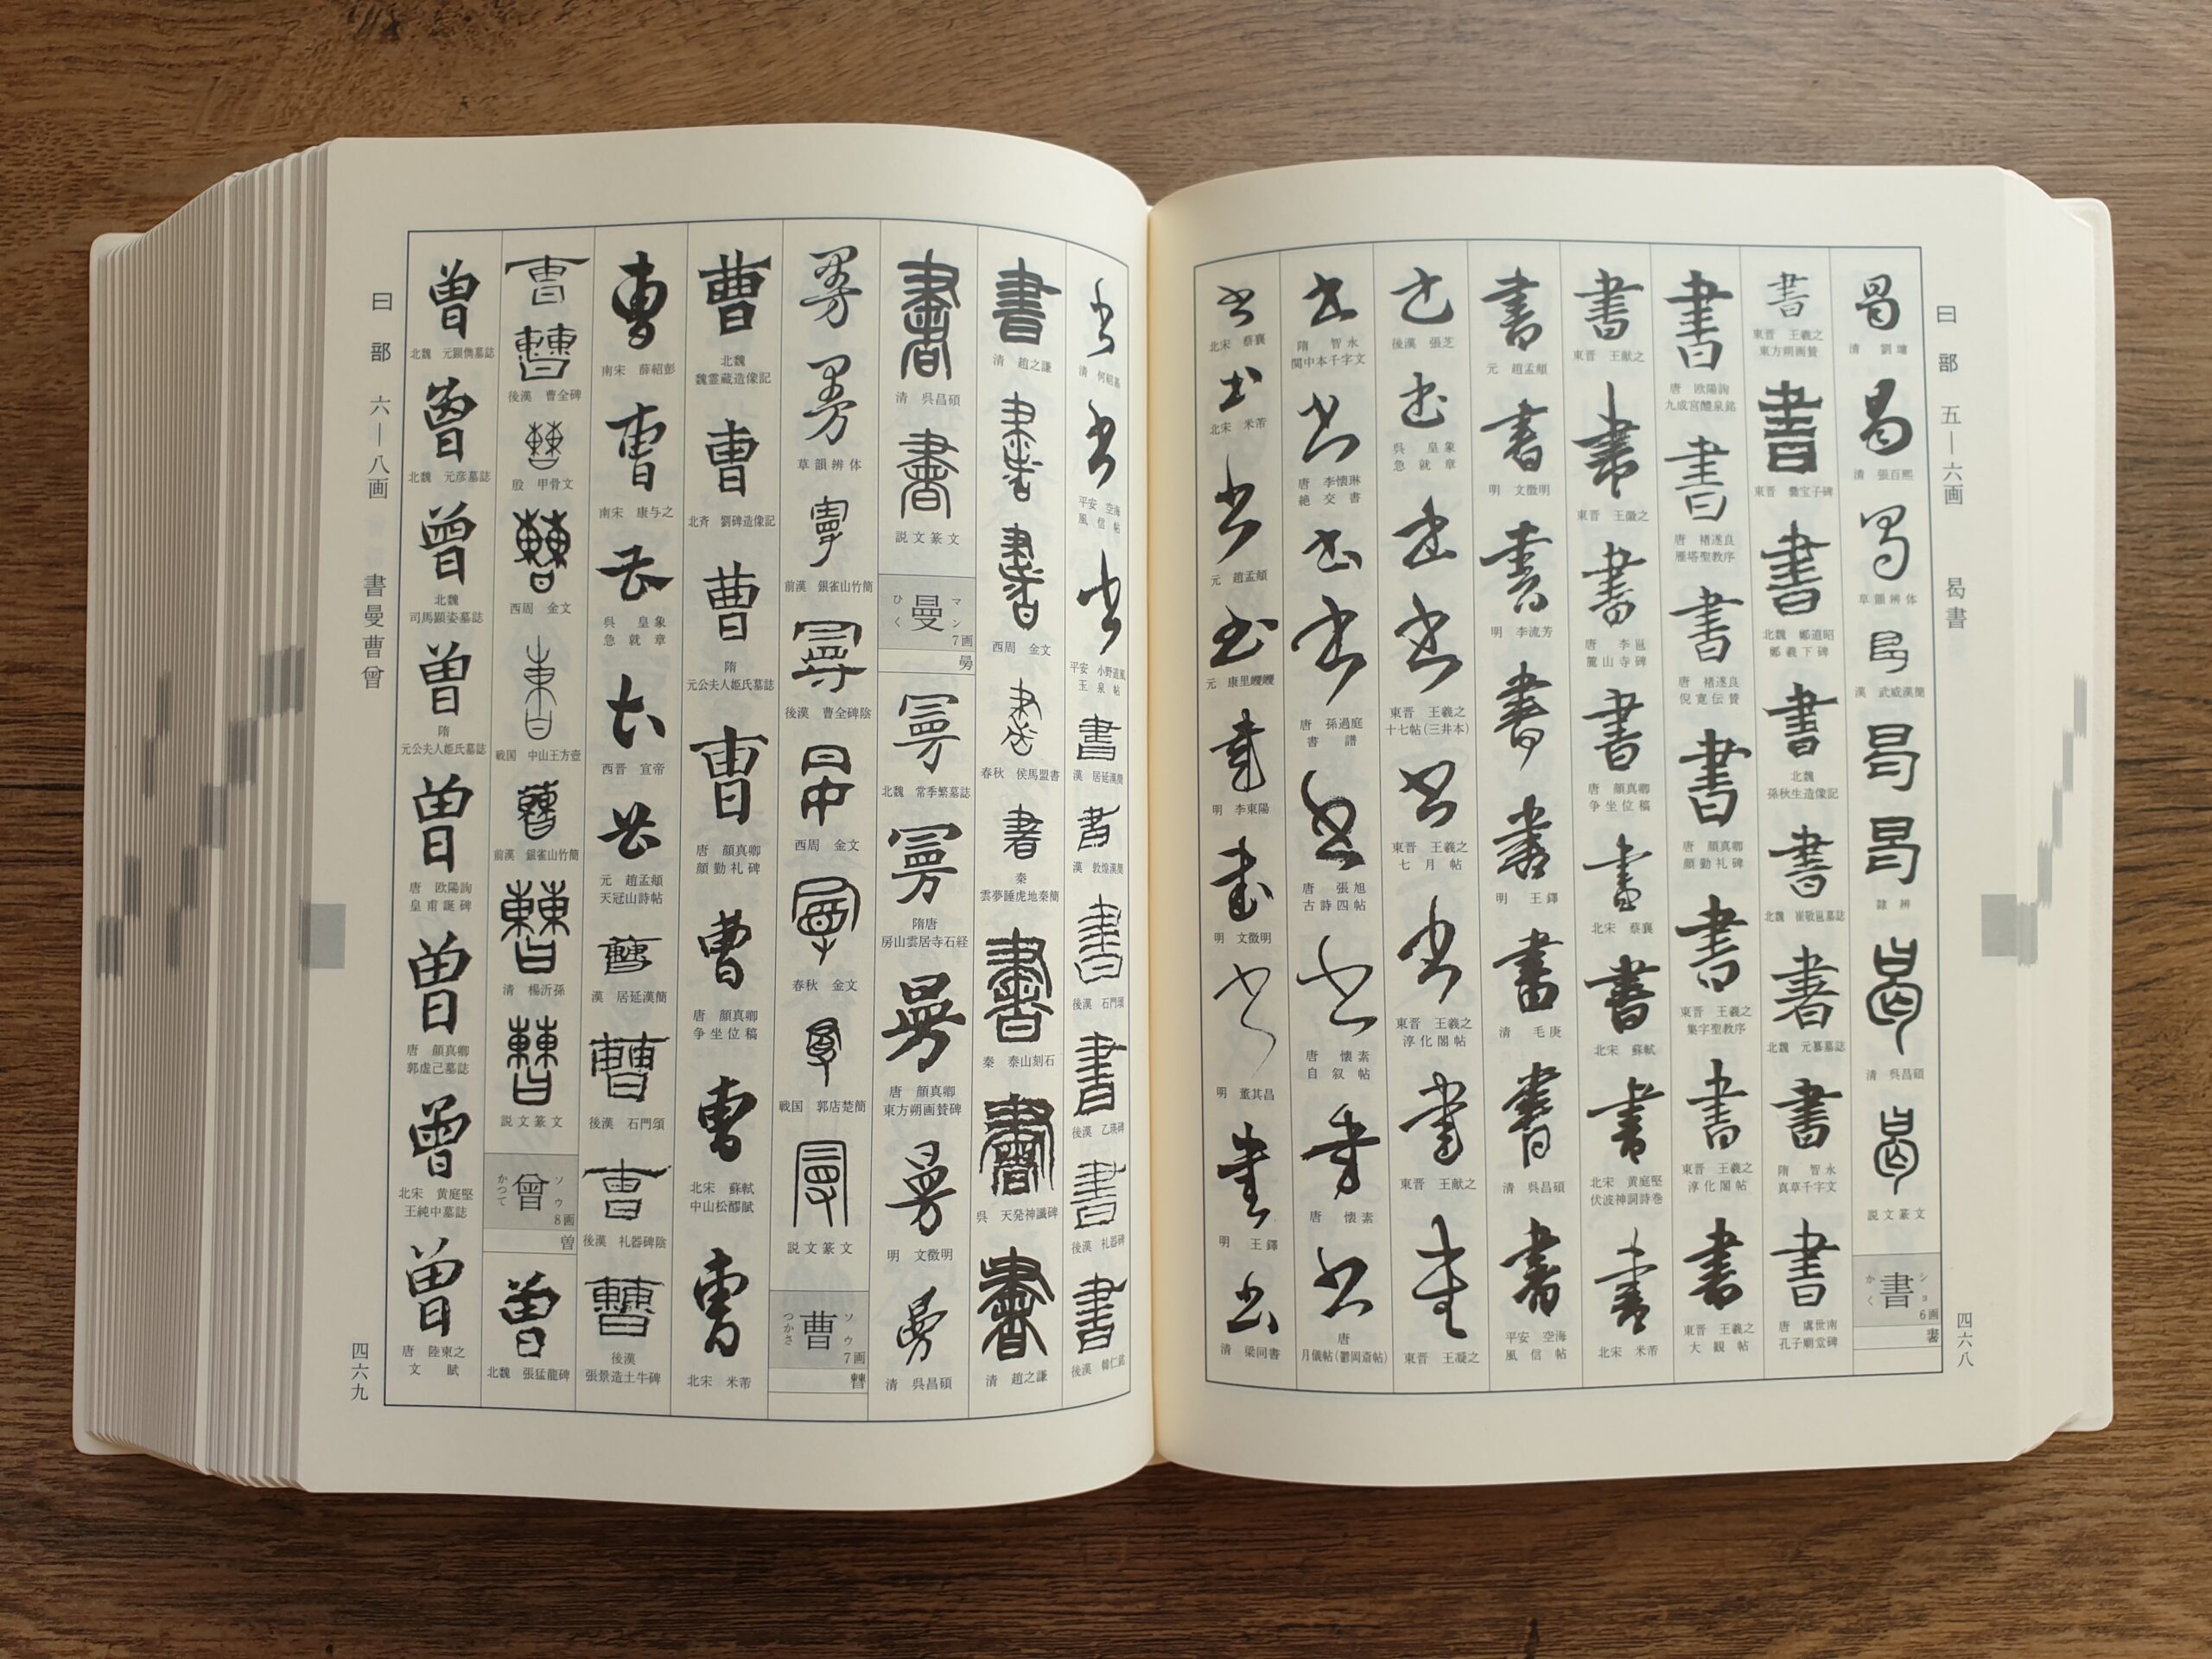 曰部 五―六画 曷書
曷
清 劉墉
曷
清 張百熙
曷
草韻辨体
曷
漢 武威漢簡
曷
曷
隷辨
曷
清 呉昌碩
曷
説文篆文
書 ショ かく 6画
書
東晋 王羲之
東方朔画賛
書
東晋 爨宝子碑
書
北魏 鄭道昭
鄭羲下碑
書
北魏
孫秋生造像記
書
北魏 崔敬邕墓誌
書
北魏 元纂墓誌
書
隋 智永
真草千字文
書
唐 虞世南
孔子廟堂碑
書
唐 欧陽詢
九成宮醴泉銘
書
唐 褚遂良
雁塔聖教序
書
唐 褚遂良
倪寛伝賛
書
唐 顔真卿
顔勤礼碑
書
東晋 王羲之
集字聖教序
書
東晋 王羲之
淳化閣帖
書
東晋 王羲之
大観帖
書
東晋 王献之
書
東晋 王徽之
書
唐 李邕
麓山寺碑
書
唐 顔真卿
争坐位稿
書
北宋 蔡襄
書
北宋 蘇軾
書
北宋 黄庭堅
伏波神祠詩巻
書
北宋 米芾
書
元 趙孟頫
書
明 文徴明
書
明 李流芳
書
書
明 王鐸
書
清 毛庚
書
清 呉昌碩
書
平安 空海
風信帖
書
後漢 張芝
書
呉 皇象
急就章
書
書
東晋 王羲之
十七帖(三井本)
書
東晋 王羲之
七月帖
書
東晋 王羲之
淳化閣帖
書
東晋 王献之
書
東晋 王凝之
書
隋 智永
関中本千字文
書
唐 李懐琳
絶交書
書
書
唐 孫過庭
書譜
書
唐 張旭
古詩四帖
書
唐 懐素
自叙帖
書
唐 懐素
書
唐
月儀帖(鬱岡斎帖)
書
北宋 蔡襄
書
北宋 米芾
書
元 趙孟頫
書
元 康里巎巎
書
明 李東陽
書
明 文徴明
書
明 董其昌
書
明 王鐸
書
清 梁同書
四六八
曰部 六―八画 書曼曹曾
書
清 何紹基
書
平安 空海
風信帖
書
平安 小野道風
玉泉帖
書
漢 居延漢簡
書
漢 敦煌漢簡
書
後漢 石門頌
書
後漢 乙瑛碑
書
後漢 礼器碑
書
後漢 韓仁銘
書
清 趙之謙
書
書
西周 金文
書
春秋 侯馬盟書
書
秦
雲夢睡虎地秦簡
書
秦 泰山刻石
書
呉 天発神讖碑
書
清 趙之謙
書
清 呉昌碩
書
説文篆文
曼 マン ひく 7画
曼
北魏 常季繁墓誌
曼
隋唐
房山雲居寺石経
曼
唐 顔真卿
東方朔画賛碑
曼
明 文徴明
曼
清 呉昌碩
曼
曼
草韻辨体
曼
前漢 銀雀山竹簡
曼
後漢 曹全碑陰
曼
西周 金文
曼
春秋 金文
曼
戦国 郭店楚簡
曼
説文篆文
曹 ソウ つかさ 7画
曹
北魏
魏霊蔵造像記
曹
北斉 劉碑造像記
曹
隋
元公夫人姫氏墓誌
曹
唐 顔真卿
顔勤礼碑
曹
唐 顔真卿
争坐位稿
曹
北宋 蘇軾
中山松醪賦
曹
北宋 米芾
曹
南宋 薛紹彭
曹
南宋 康与之
曹
呉 皇象
急就章
曹
西晋 宣帝
曹
元 趙孟頫
天冠山詩帖
曹
漢 居延漢簡
曹
後漢 石門頌
曹
後漢 礼器碑陰
曹
後漢
張景造土牛碑
曹
曹
後漢 曹全碑
曹
殷 甲骨文
曹
西周 金文
曹
戦国 中山王方壺
曹
前漢 銀雀山竹簡
曹
清 楊沂孫
曹
説文篆文
曾 ソウ かつて 8画
曽
曾
北魏 張猛龍碑
曾
北魏 元顕儁墓誌
曾
北魏 元彦墓誌
曾
北魏
司馬顕姿墓誌
曾
隋
元公夫人姫氏墓誌
曾
唐 欧陽詢
皇甫誕碑
曾
唐 顔真卿
郭虚己墓誌
曾
北宋 黄庭堅
王純中墓誌
曾
唐 陸柬之
文賦
四六九